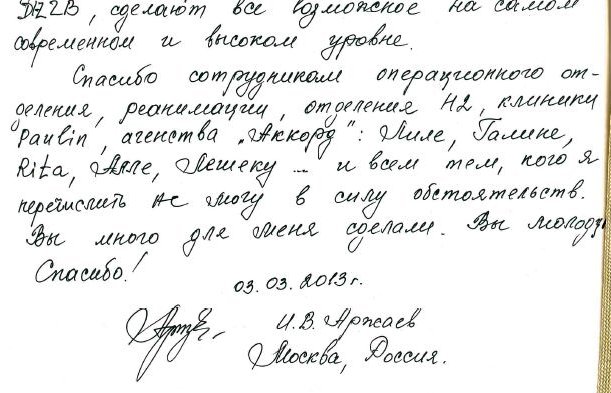 DHZB, сделают все возможное на самом
современном и высоком уровне.
Спасибо сотрудникам операционного от-
деления, реанимации, отделения H2, клиники
Paulin, агенства „Аккорд“: Лиле, Галине,
Rita, Алле, Лешеку ... и всем тем, кого я
перечислить не могу в силу обстоятельств.
Вы много для меня сделали. Вы молодцы
Спасибо!
03.03.2013г.
И.В. Аржаев
Москва, Россия.